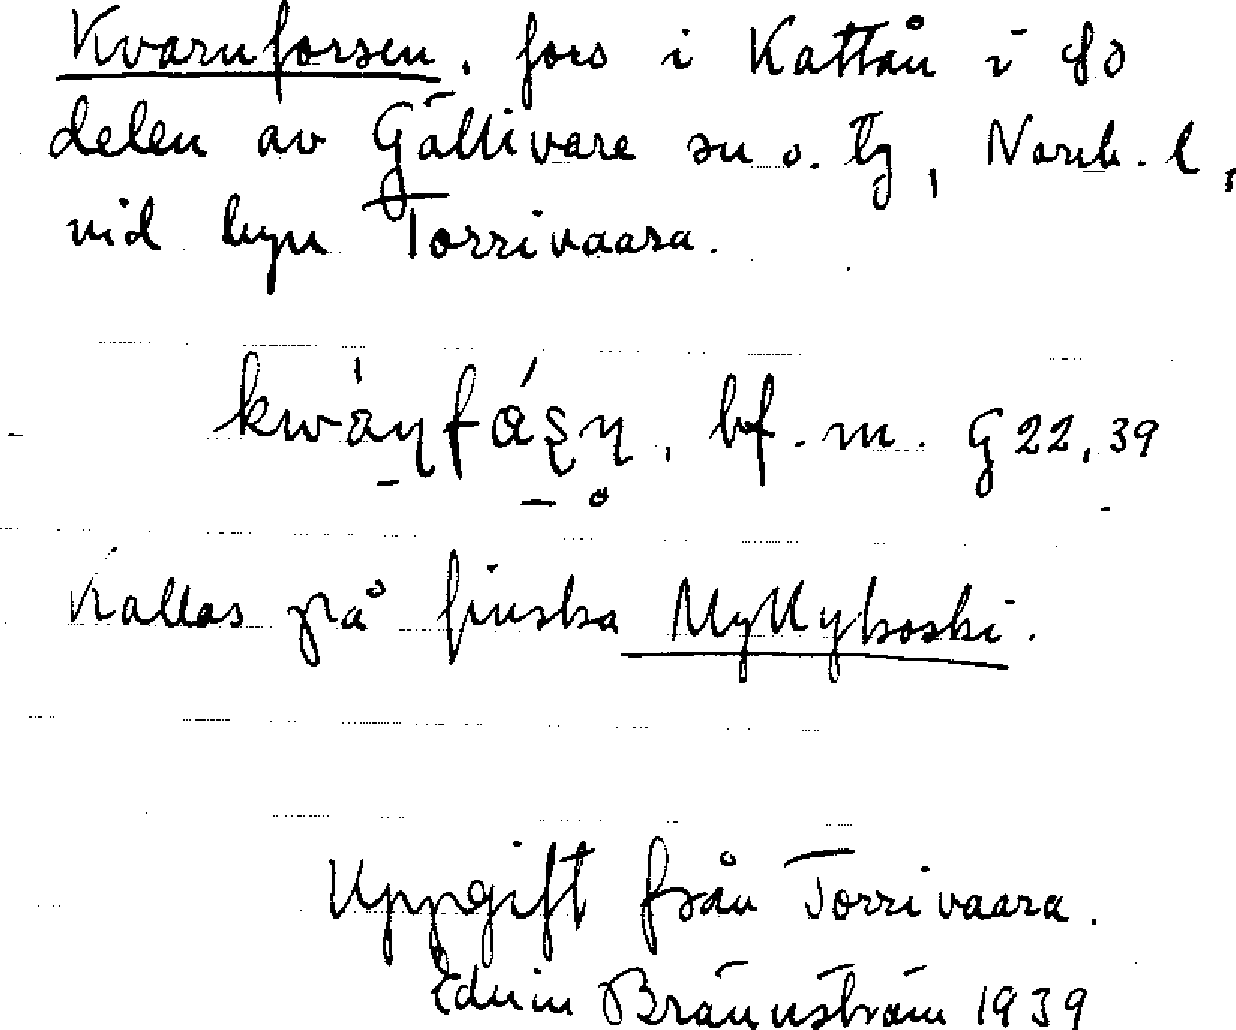 Kvarnforsen, fors i Kattån i sö
delen av Gällivare sn o. tg, Norrb. l,
vid byn Torrivaara.
bf. m. G 22, 39
Kallas på finska Myllykoski.
Uppgift från Torrivaara.
Edvin Brännström 1939